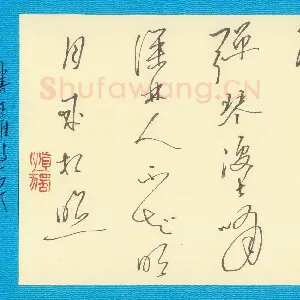 彈琴復长嘯
深林人不知明
月来相照
Shufawang.CN